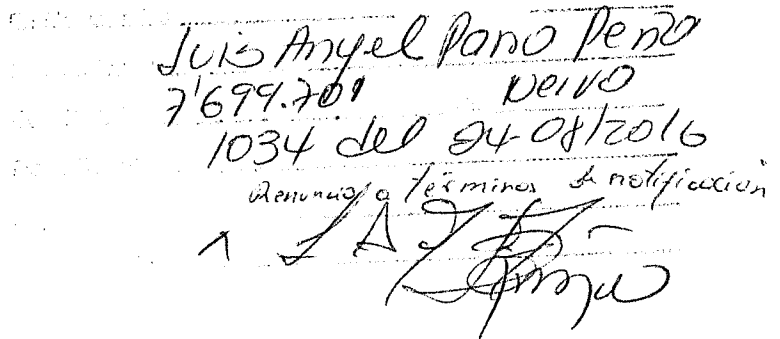 Luis Angel Pano Peña
7'699.701 Neiva
1034 del 24-08/2016
Renuncia a términos de notificación